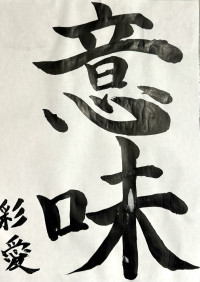 意味
彩愛